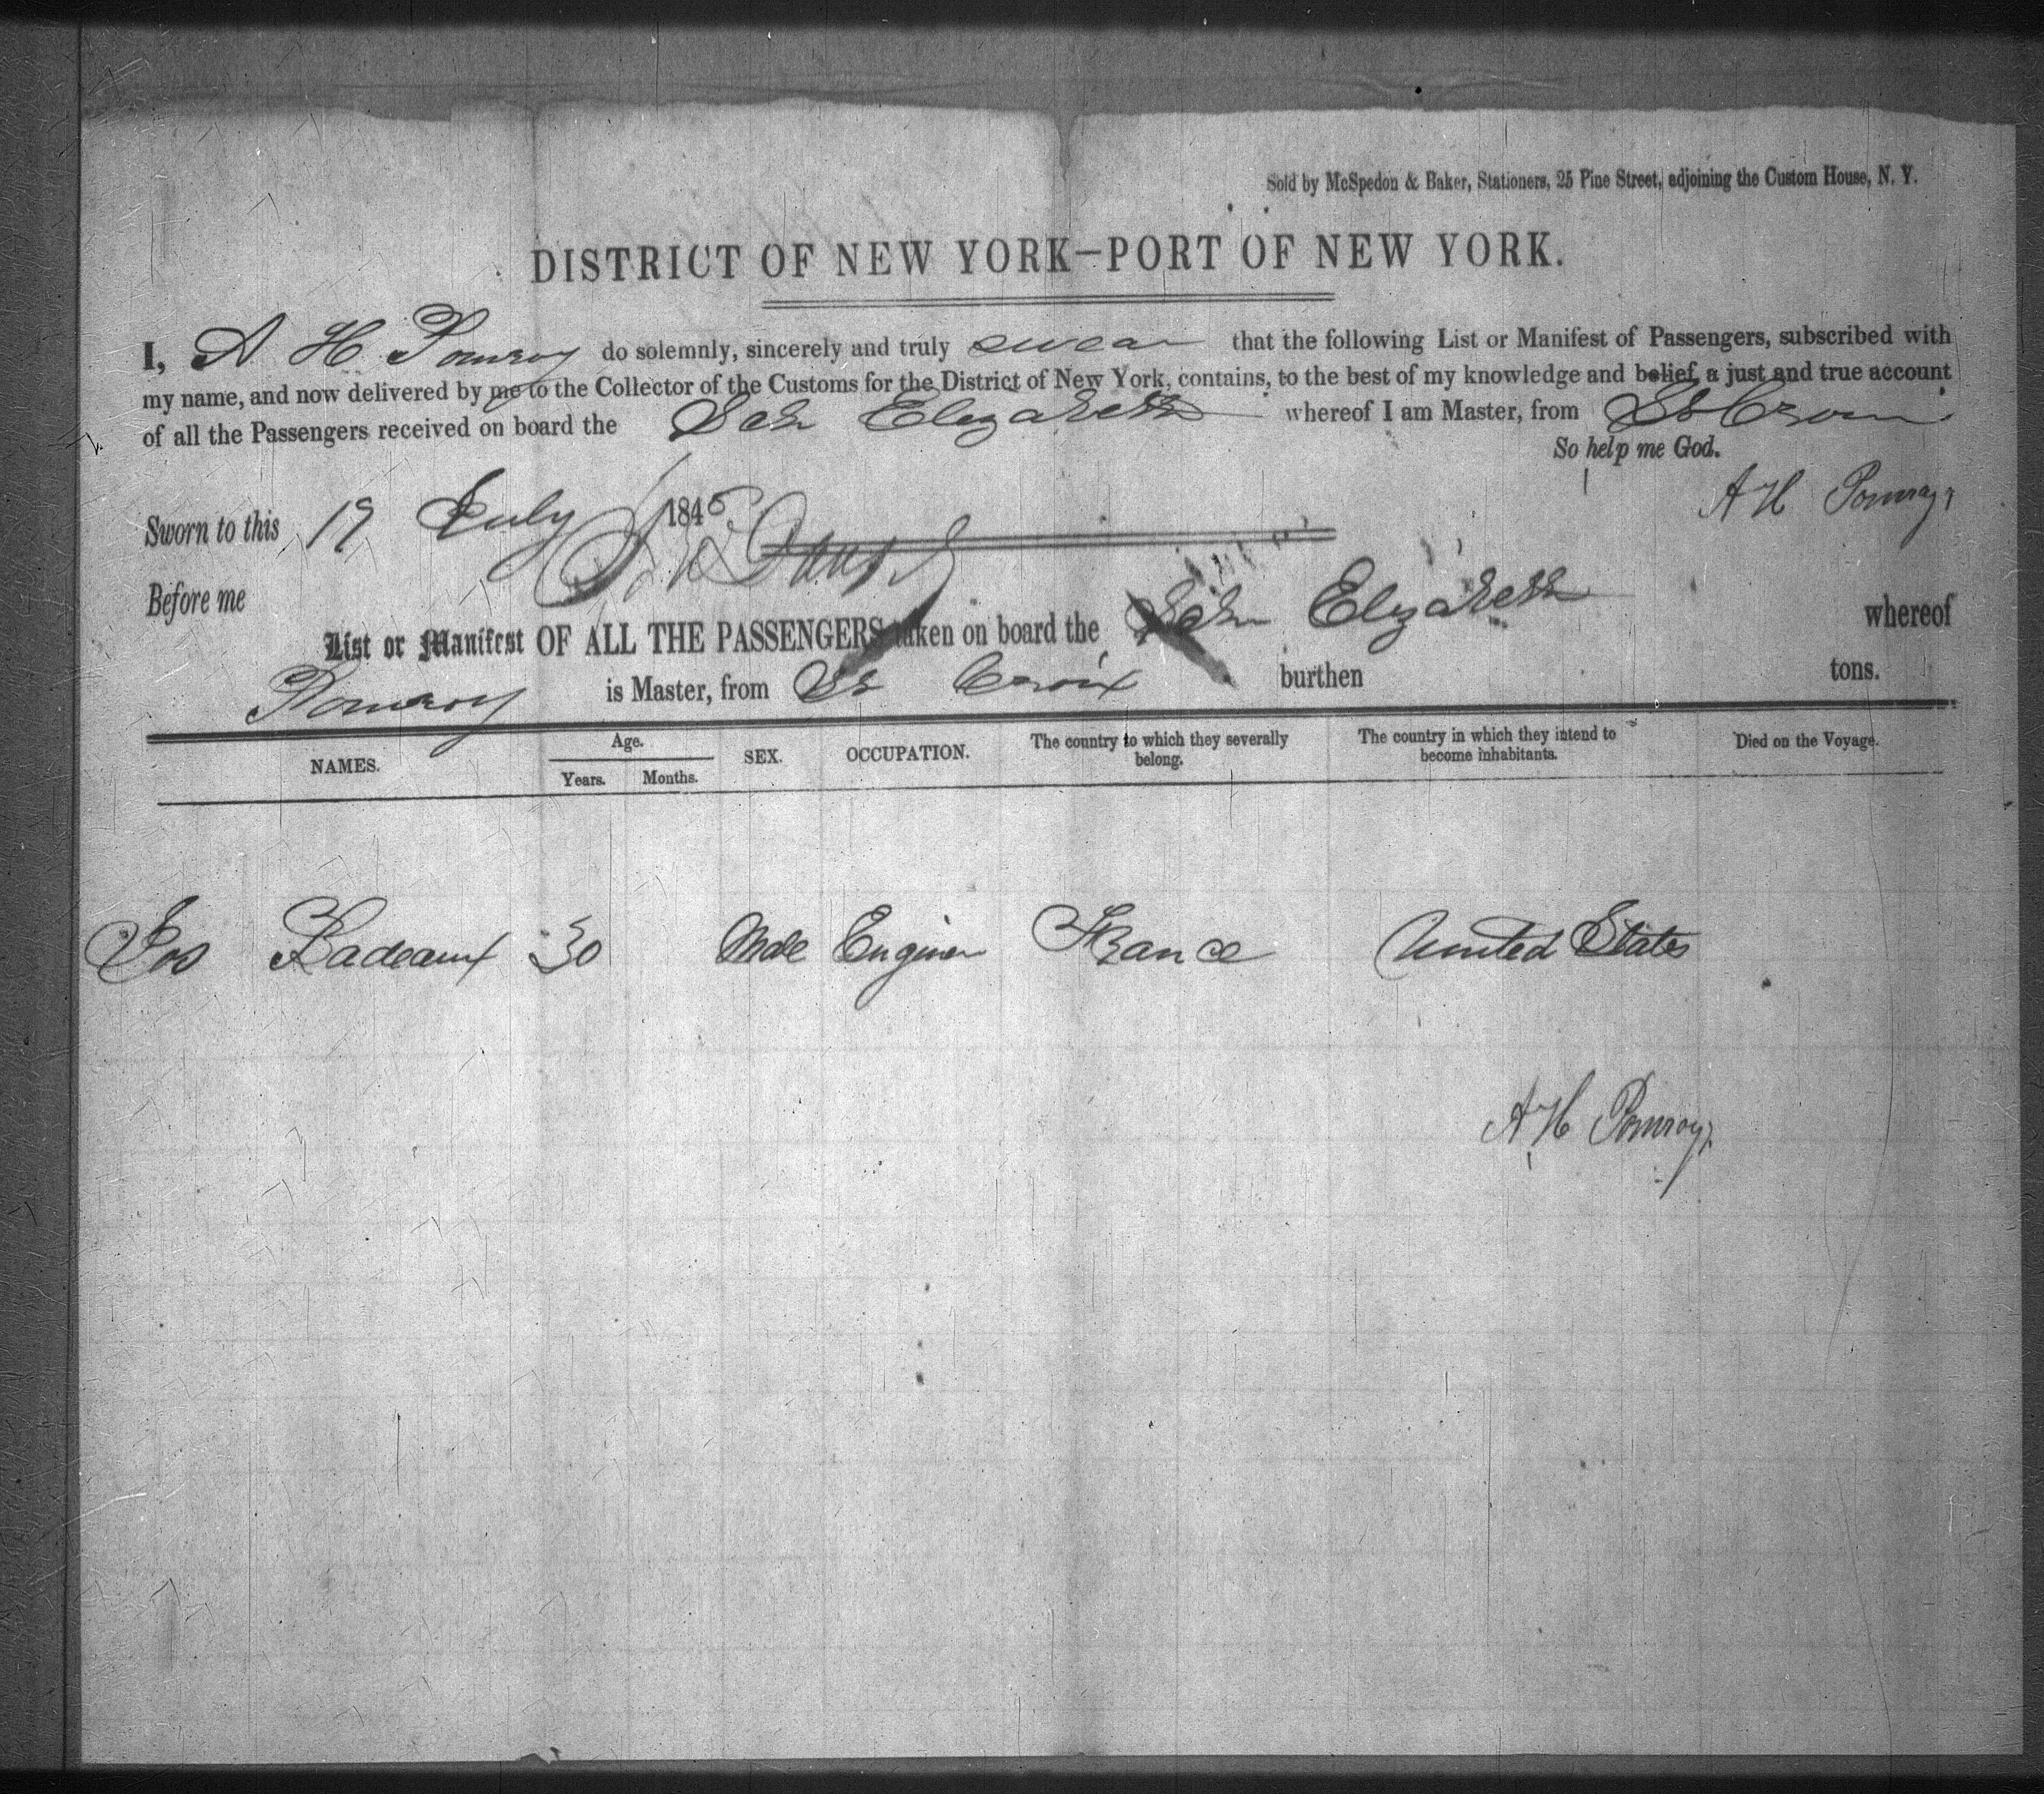 Sold by McSpedon & Baker, Stationers, 25 Pine Street, adjoining the Custom House, N. Y.
DISTRICT OF NEW YORK—PORT OF NEW YORK.
I, A H Pomroy do solemnly, sincerely and truly swear that the following List or Manifest of Passengers, subscribed with
my name, and now delivered by me to the Collector of the Customs for the District of New York, contains, to the best of my knowledge and belief, a just and true account
of all the Passengers received on board the Schr Elizabeth whereof I am Master, from St Croix
So help me God.
A H Pomroy
Sworn to this 19 July 1845
Before me
List or Manifest OF ALL THE PASSENGERS taken on board the Schr Elizabeth whereof
Pomroy is Master, from St Croix burthen tons.
NAMES. Age. SEX. OCCUPATION. The country to which they severally belong. The country in which they intend to become inhabitants. Died on the Voyage.
Years. Months.
Jos Radeaux 30 Male Engineer France United States
A H Pomroy